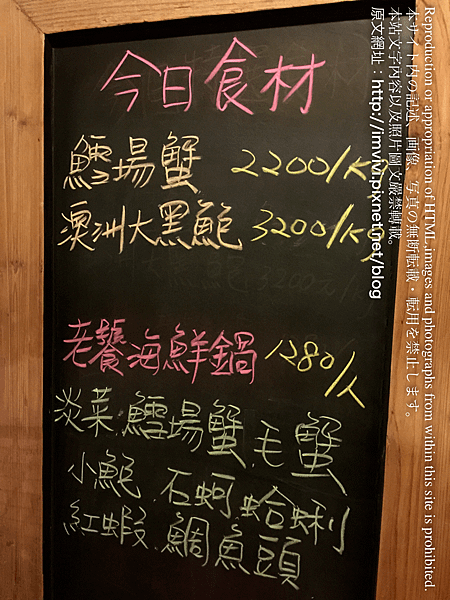 今日食材
鱈場蟹 2200/kg
澳洲大黑鮑 3200/kg
老饕海鮮鍋 1280/人
淡菜.鱈場蟹.毛蟹
小鮑.石蚵.蛤蜊
紅蝦.鯛魚頭
Reproduction or appropriation of HTML,images and photographs from within this site is prohibited.
本サイト内の記述、画像、写真の無断転載・転用を禁止します。
本站文字內容以及照片圖文嚴禁轉載。
原文網址：http://imviv.pixnet.net/blog